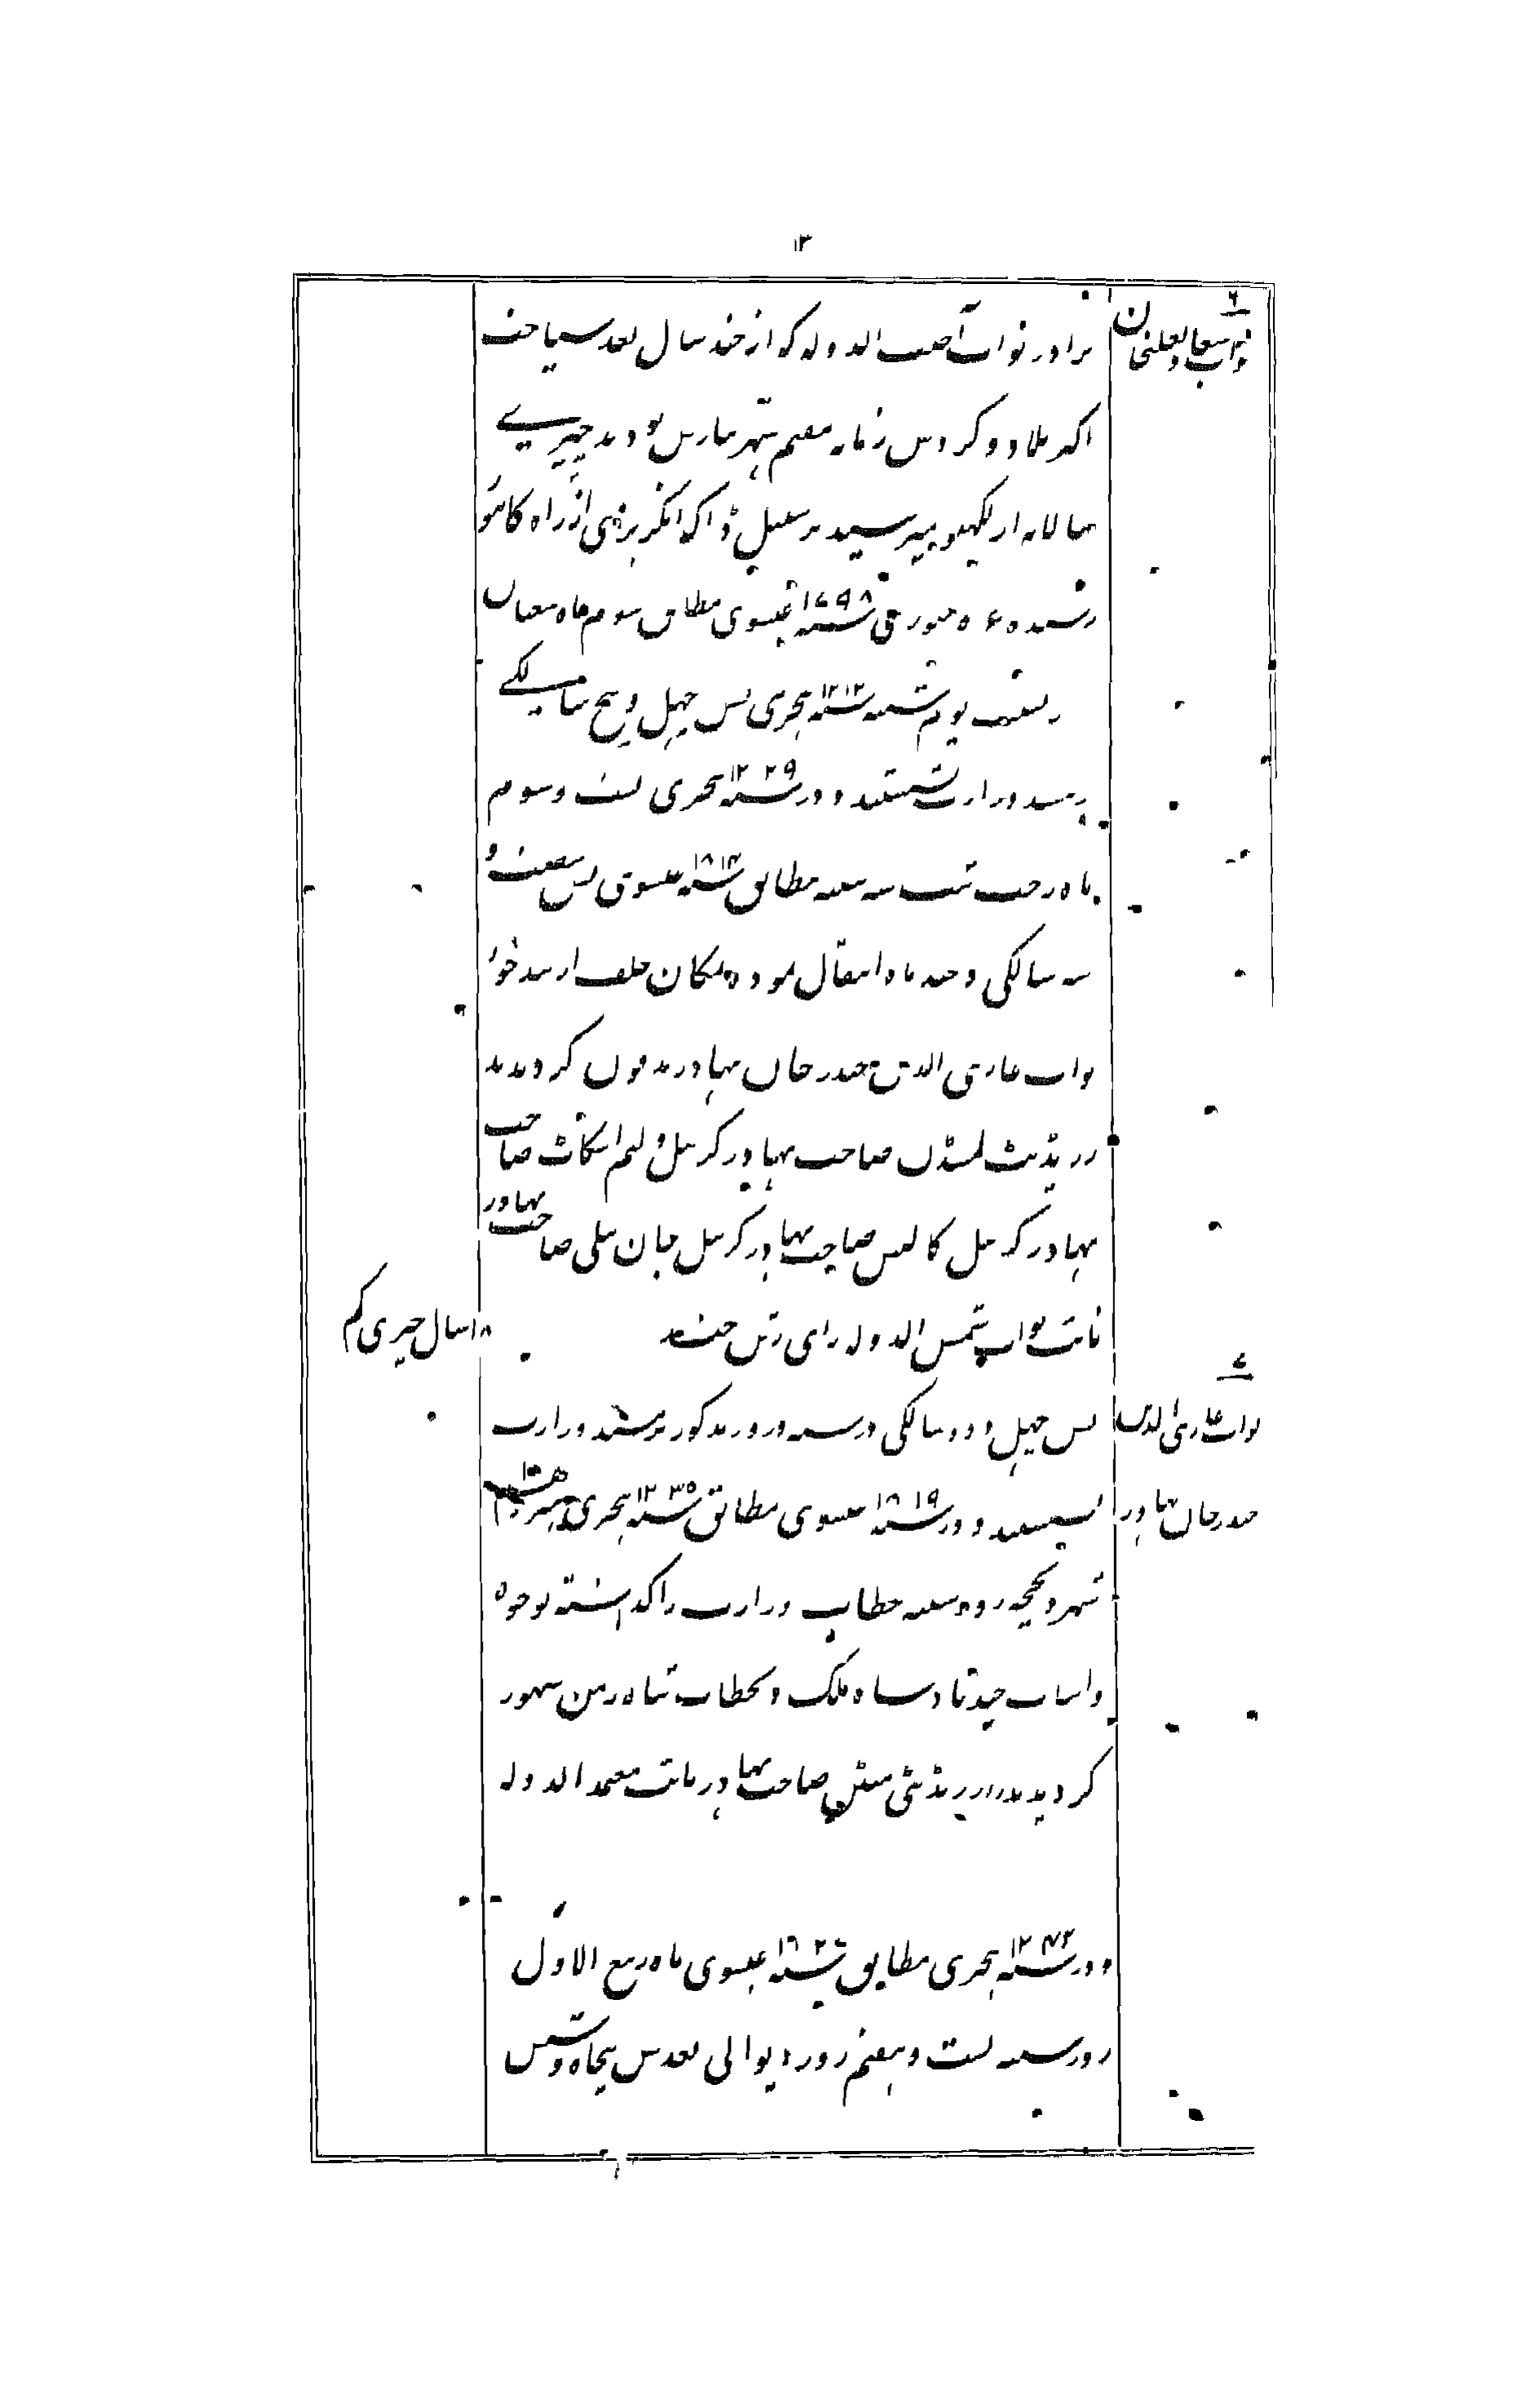 ۱۳
۶
نواب سعادت علیخان
برادر نواب آصف الدوله که از چند سال بعد سیاحت
اکثر بلاد و گردش زمانه مقیم شهر بنارس بودند چیزے
سالانه از لکهنو میرسید بر سبیل ڈاک انگریزی از راه کانپور
رسیده ۶ ماه جنوری سنه ۱۷۹۸ عیسوی مطابق سوم ماه شعبان
یوم شنبه سنه ۱۲۱۲ هجری بسن چهل و پنج سالگے
بمسند وزارت نشستند و در سنه ۱۲۲۹ هجری بست و سوم
ماه رجب شب سه شنبه مطابق سنه ۱۸۱۴ عیسوی بسن شصت و
سه سالگی و چند ماه انتقال نموده بمکان خلف ارشد خود
نواب غازی الدین حیدر خان بهادر مدفون گردیدند
رزیڈنٹ لمسڈن صاحب بهادر کرنل ولیم اسکاٹ صاحب
بهادر کرنل کالنس صاحب بهادر کرنل جان بیلی صاحب بهادر
نائب نواب شمس الدوله رای رتن چند
۱۸ سال چیزی کم
۷
نواب غازی الدین
حیدر خان بهادر
بسن چهل و دو سالگی در سنه و روز مذکور بر مسند وزارت
و در سنه ۱۸۱۹ عیسوی مطابق سنه ۱۲۳۵ هجری هژدهم
شهر ذیحجه روز شنبه خطاب وزارت را گذاشته بوجوه
و اسباب چند تا دشاه ملک و بخطاب شاه زمن مشهور
گردیدند رزیڈنٹی صاحب بهادر نائب معتمد الدوله
و در سنه ۱۲۴۳ هجری مطابق سنه ۱۸۲۷ عیسوی ماه ربیع الاول
روز شنبه بست و هفتم روز دیوالی بعد سن پنجاه و شش